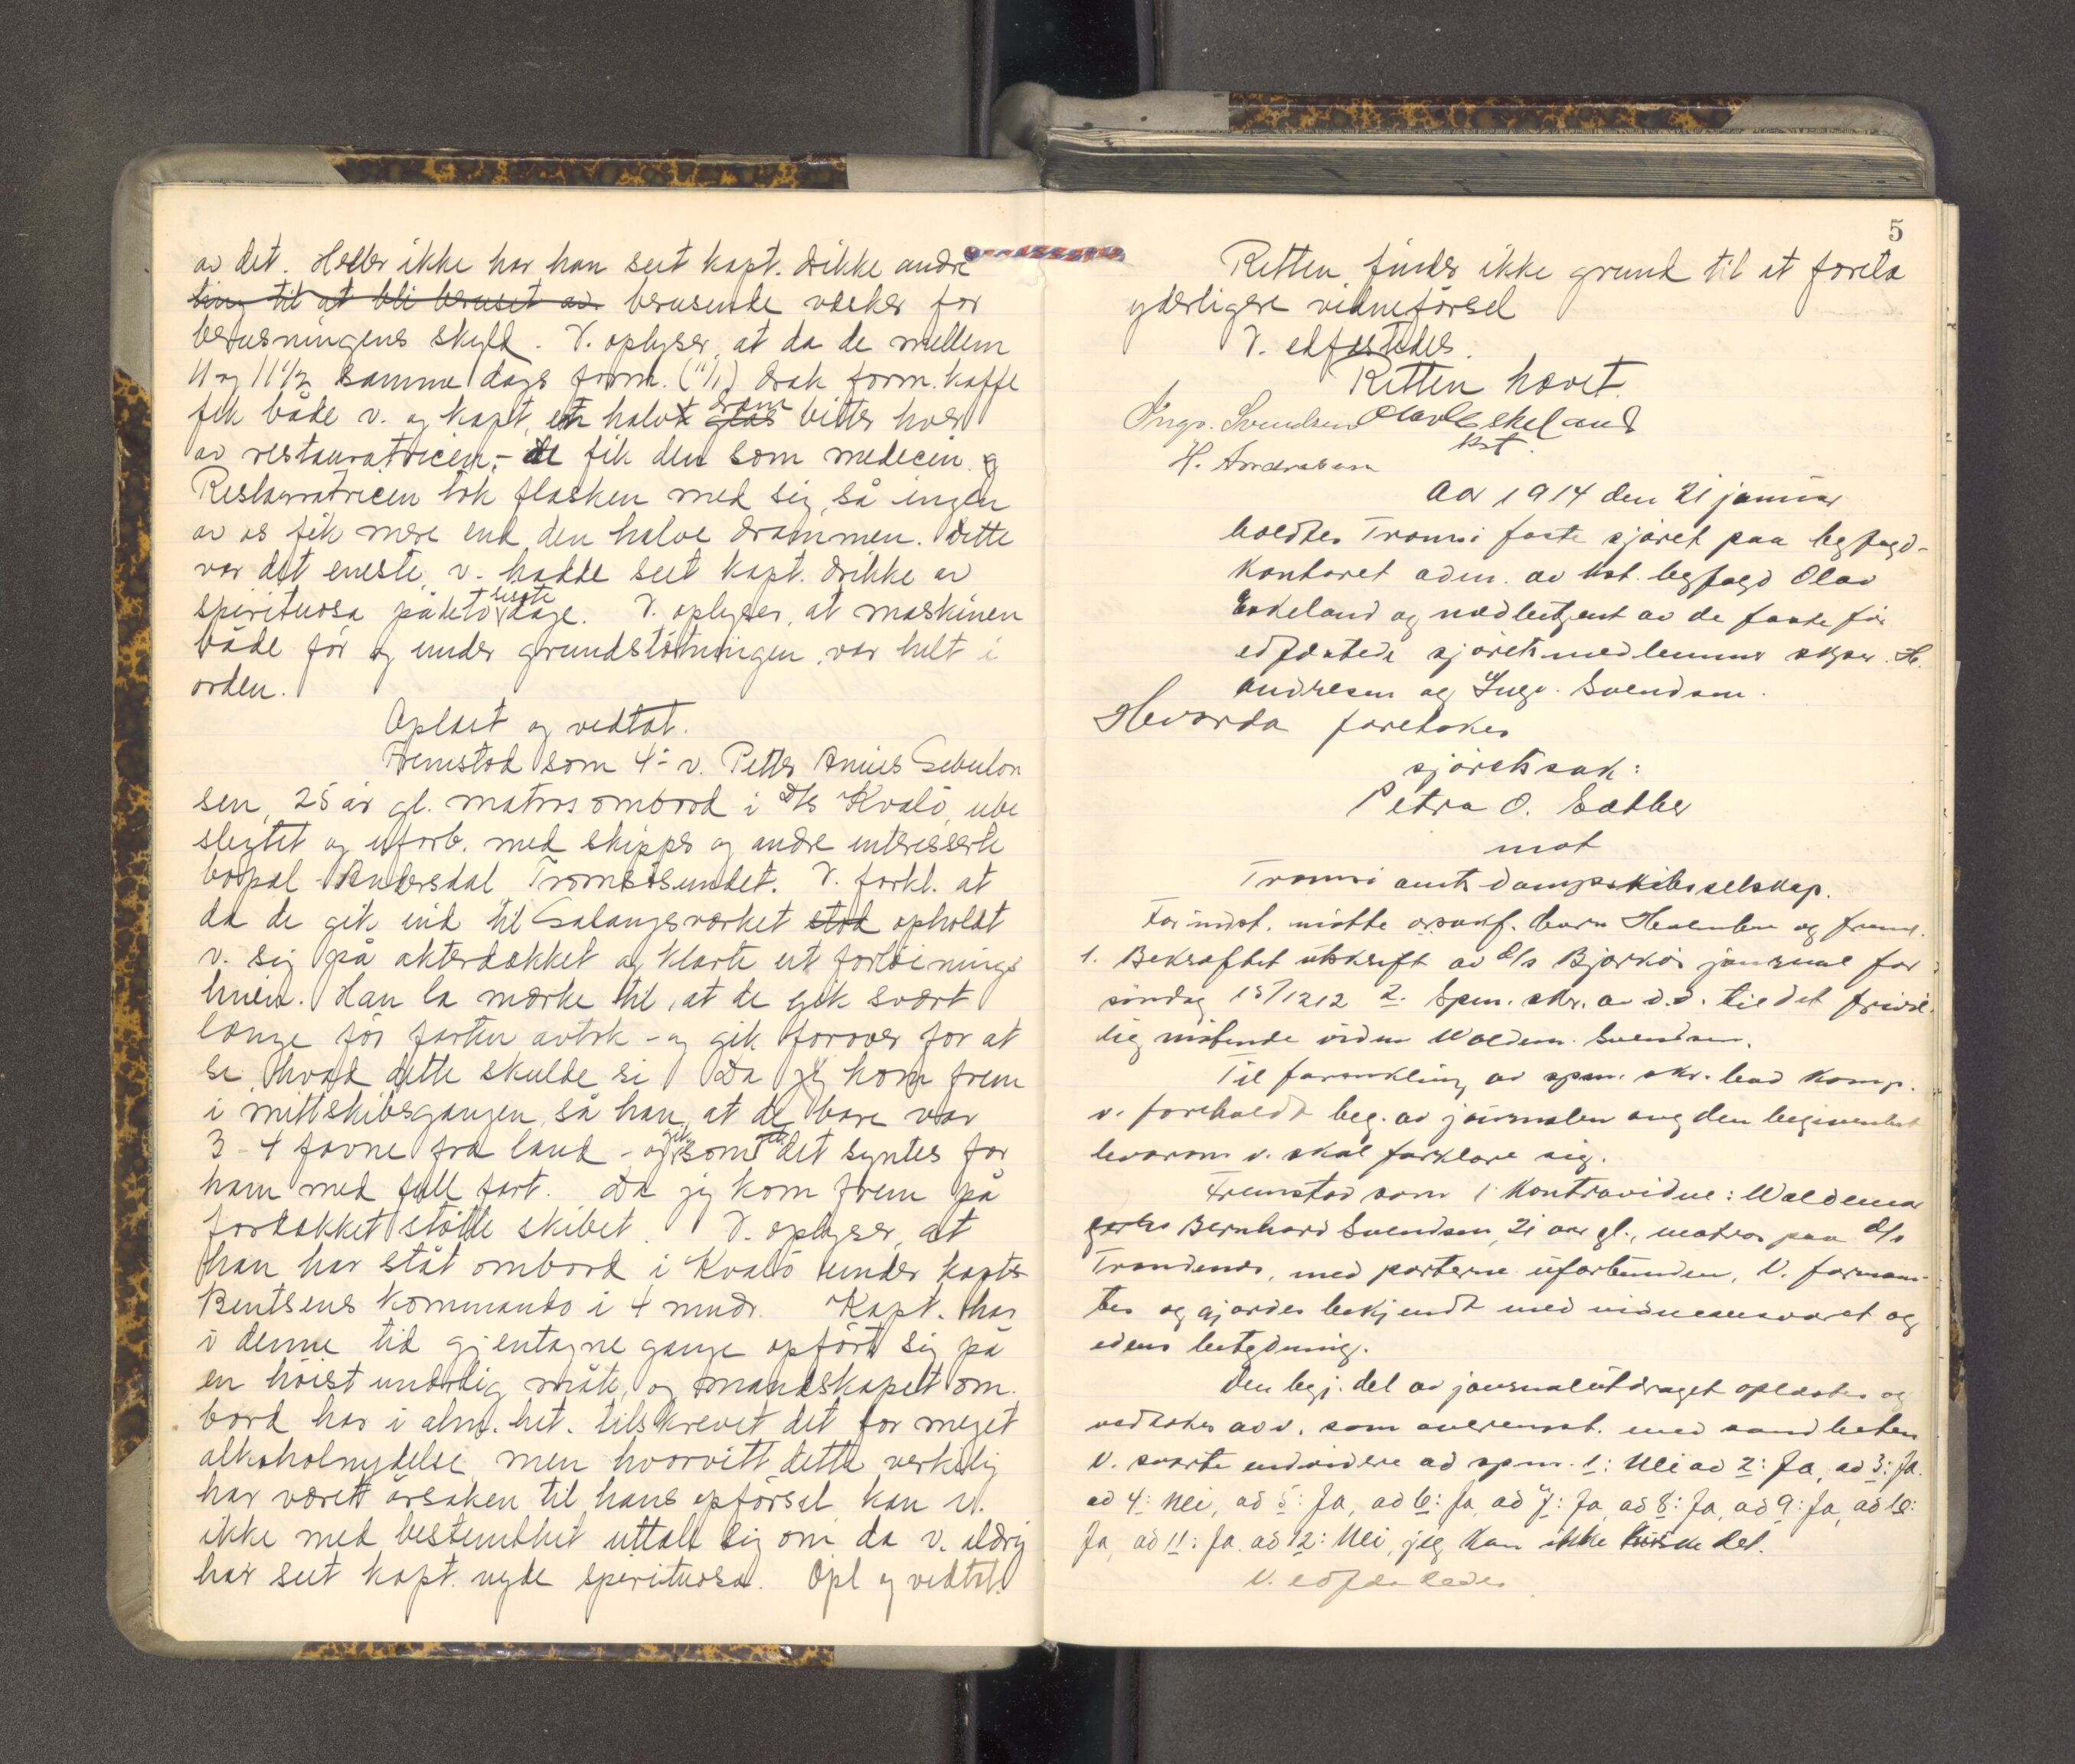 av det. Heller ikke har han seet kapt. drikke andre
ting til at bli beruset av berusende væsker for
berusningens skyld. V. oplyser, at da de mellem
11 og 11½ samme dags form. (11/1) drak form. kaffe
fik både v. og kapt. en halv dram bitter hver
av restauratricen, - de fik den som medecin. og
Restauratricen tok flasken med sig, så ingen
av os fik mere end den halve drammen. Dette
var det eneste, v. hadde seet kapt. drikke av
spirituosa på de to siste dage. V. oplyser, at maskinen
både før og under grundstötningen var helt i
orden.
Oplæst og vedtat.
Fremstod som 4de v. Petter Anius Sebulon
sen, 25 år gl. matros ombord i D/S Kvalö, ube
slegtet og uforb. med skipper og andre interesserte
bopæl Andersdal Tromsösundet. V. forkl. at
da de gik ind til Salangsverket stod opholdt
v. sig på akterdækket og klarte ut fortöinings
linen. Han la mærke til, at de gik svært
længe för farten avtok - og gik forover for at
se, hvad dette skulde si. Da jeg kom frem
i mittskibsgangen, så han, at de bare var
3-4 favne fra land - og gik som det syntes for
ham med full fart. Da jeg kom frem på
fordækket stötte skibet. V. oplyser, at
han har ståt ombord i Kvalö under kaptn
Bentsens kommando i 4 mndr. Kapt. har
i denne tid gjentagne gange opfört sig på
en höist underlig måte, og mandskapet om
bord har i alm.het. tilskrevet det for meget
alkoholnydelse, men hvorvitt dette verkelig
har været årsaken til hans opförsel, kan v.
ikke med bestemthet uttale sig om, da v. aldrig
har seet kapt. nyde spirituosa. Opl og vedtat.
5
Retten finder ikke grund til at foreta
yderligere vidneförsel
V. edfæstedes.
Retten hævet.
Ingv. Svendsen Olav Eskeland
kst.
H. Andresen
Aar 1914 den 21 januar
holdtes Tromsö faste sjöret paa byfogd-
kontoret adm. av kst. byfogd Olav
Eskeland og med betjent av de faste för
edfæstede sjöretsmedlemmer skper. H.
Andresen og Ingv. Svendsen.
Hvorda foretokes
sjöretssak:
Petra O. Sæther
mot
Tromsö amts dampskibsselskap.
For indst. mötte o.r.sakf. Hern og frem.
1. Bekræftet utskrift av D/S Bjarköi journal for
söndag 15/12 12 2. Spm. skr. av d.d. til det frivil
lig mötende vidne Waldem. Svendsen.
Til besvarelse av spm. skr. blev
v. foreholdt beg. av journalen ang den begivenhet
hvorom v. skal forklare sig.
Fremstod som 1 kontravidne: Waldemar
Bernhard Svendsen, 21 aar gl., matros paa D/S
Trondenes, med parterne uforbunden. V. forman-
tes og gjordes bekjendt med vidneansvaret og
edens betydning.
Den begj. del av journalutdraget oplæstes og
vedtokes av v. som overensst. med sandheten
V. svarte endvidere ad spm. 1: Nei ad 2: Ja, ad 3: Ja.
ad 4: Nei, ad 5: Ja, ad 6: Ja, ad 7: Ja, ad 8: Ja, ad 9: Ja, ad 10:
Ja, ad 11: Ja, ad 12: Nei, jeg kan ikke huske det.
V. edfæstedes.